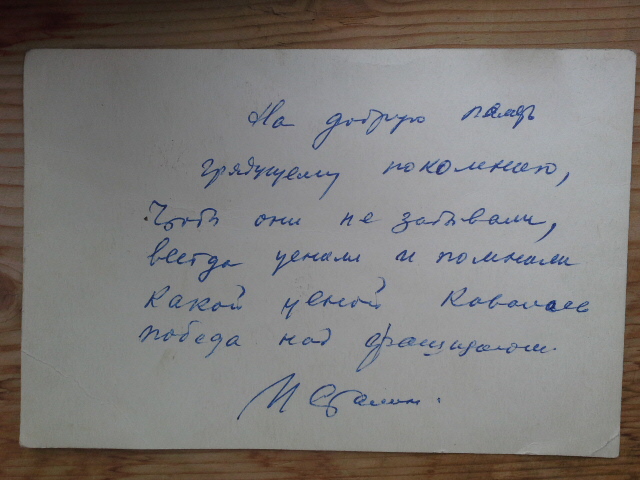 На добрую память
грядущему поколнию,
Чтобы они не забывали,
всегда ценили и помнили
какой ценой ковалась
победа над фашизмом.
И Сталин.